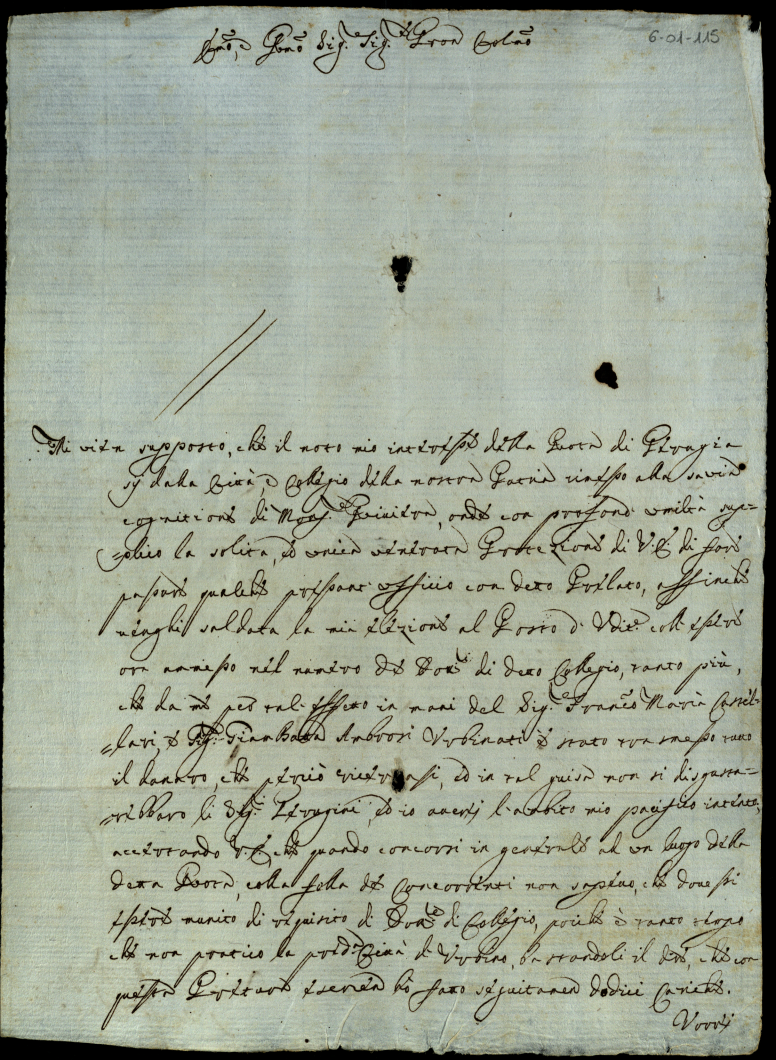 6-01-115
Illmo, e Rmo Sig. Sig. e Pron Colmo
Mi vien supposto, che il noto mio interesse della Ruota di Perugia
sij dalla Città, e Collegio della nostra Patria rimesso alla savia
cognitione di Mons.re onde con profond. umiltà sup=
=plico la solita, ed unica venerata Protezione di V.E. di fare
passare qualche pressante ufficio con detto Prelato, affinche
venghi saldata la mia elezione al Posto di Udit.e coll'essere
ora ammesso nel numero de Dott.i di detto Collegio, tanto più,
che da me per tal effetto in mani del Sig.e Franco Maria Castel=
=lari, e Sig. Giam Batta Ambrosi Urbinati è stato tutto
il danaro, che perciò ed in tal guisa non si disgusta=
=rebbero li Sig.i Perugini, ed io averej l'ambito mio pacifico intento,
accertando V.E., che quando concorsi in generale ad un luogo della
detta Ruota, colla folla de Concorrenti non sapevo, che dovessi
essere munito di requisito di Dott.e di Collegio, poiche è tanto tempo
che non pratico la pred.a Città di Urbino, che con
questa Pretura ho fatto dodici Cariche.
Vorrej